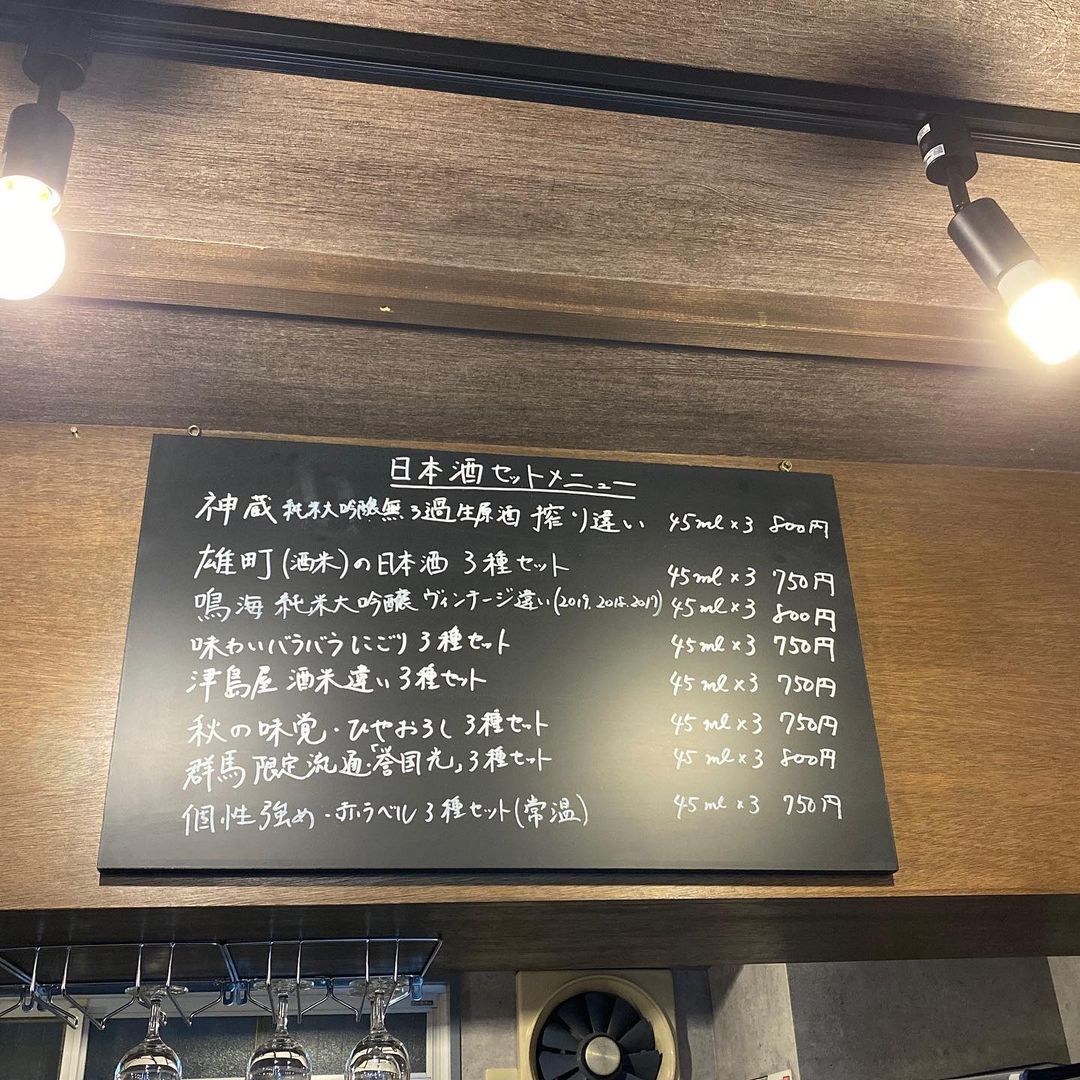 日本酒セットメニュー
神蔵 純米大吟醸無ろ過生原酒 搾り違い 45ml×3 800円
雄町(酒米)の日本酒 3種セット 45ml×3 750円
鳴海 純米大吟醸 ヴィンテージ違い(2019, 2015, 2017) 45ml×3 800円
味わいバラバラにごり 3種セット 45ml×3 750円
津島屋 酒米違い 3種セット 45ml×3 750円
秋の味覚・ひやおろし 3種セット 45ml×3 750円
群馬限定流通・「誉国光」3種セット 45ml×3 800円
個性強め・赤ラベル 3種セット(常温) 45ml×3 750円